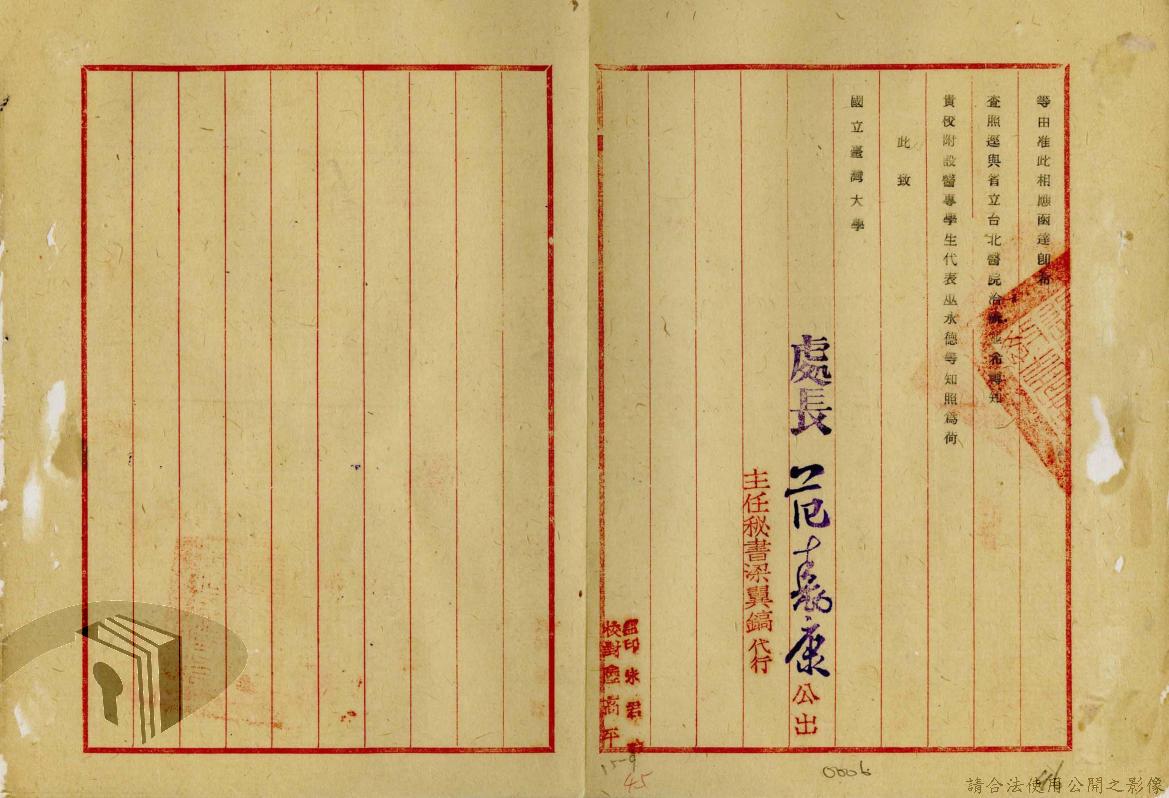 等由准此相應函達卽希
查照逕與省立台北醫院洽 希轉知
貴校附設醫專學生代表巫永德等知照爲荷
此致
國立臺灣大學
處長 范壽康 公出
主任秘書梁翼鎬代行
監印 朱君
校對 高平
15-9
45
0006
請合法使用公開之影像